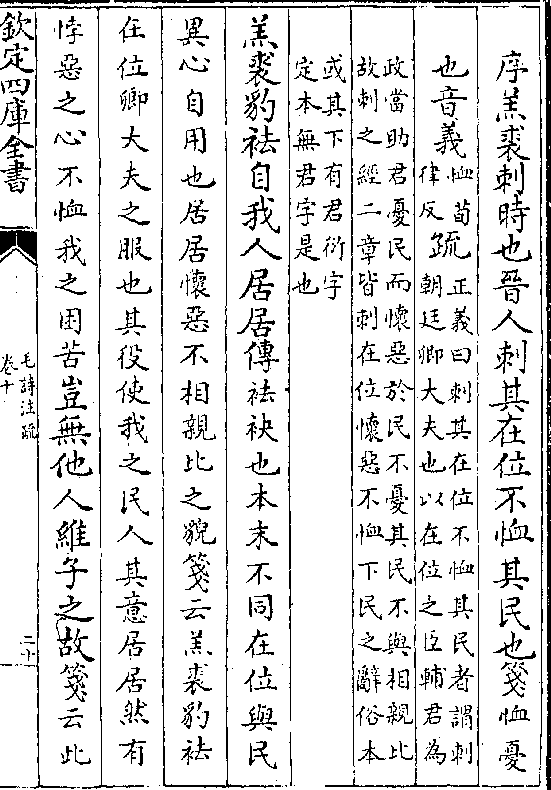 序羔裘刺時也晉人刺其在位不恤其民也箋恤憂
也音義恤荀律反疏正義曰刺其在位不恤其民者謂刺
朝廷卿大夫也以在位之臣輔君為
政當助君憂民而懷惡於民不憂其民不與相親比
故刺之經二章皆刺在位懷惡不恤下民之辭俗本
或其下有君衍字
定本無君字是也
羔裘豹袪自我人居居傳袪袂也本末不同在位與民
異心自用也居居懷惡不相親比之貌箋云羔裘豹袪
在位卿大夫之服也其役使我之民人其意居居然有
悖惡之心不恤我之困苦豈無他人維子之故箋云此
欽定四庫全書
毛詩注疏
卷十
二十